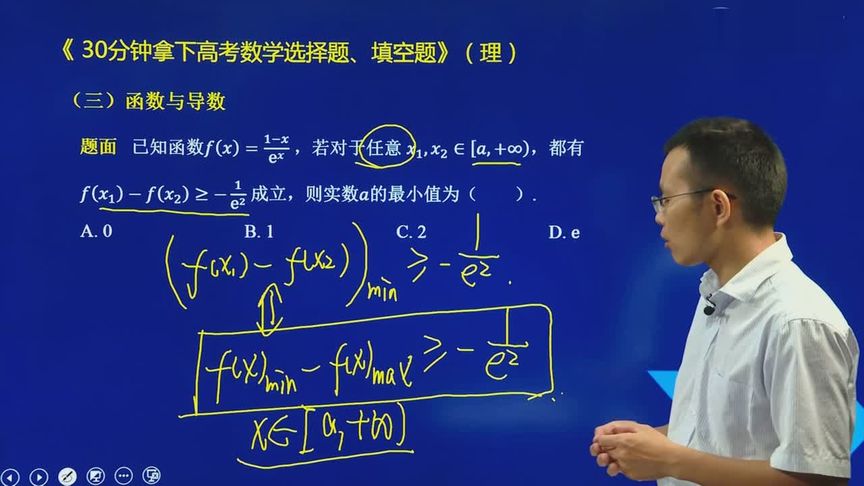 《 30分钟拿下高考数学选择题、填空题》（理）
（三）函数与导数
题面 已知函数f(x) = \frac{1-x}{e^x}，若对于任意 x₁, x₂ ∈ [a, +∞)，都有
f(x₁) − f(x₂) ≥ −\frac{1}{e^2}成立，则实数a的最小值为（ ）.
A. 0 B. 1 C. 2 D. e
(f(x₁) − f(x₂))min ≥ −\frac{1}{e^2}.
f(x)min − f(x)max ≥ −\frac{1}{e^2}
x∈[a,+∞)